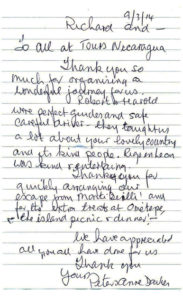 9/3/14
Richard and —
So all at Tours Nicaragua
Thank you so
much for organising a
wonderful journey for us.
Robert & Harold
were perfect guides and safe
careful driver. they taught us
a lot about your lovely country
and its kind people.
was kind
Thank you for
quickly arranging our
escape from "Monte
for the extra treats at Ometepe,
the island picnic & dinner!
We have appreciated
all you all have done for us
Thank you
Yours Peter & Anne